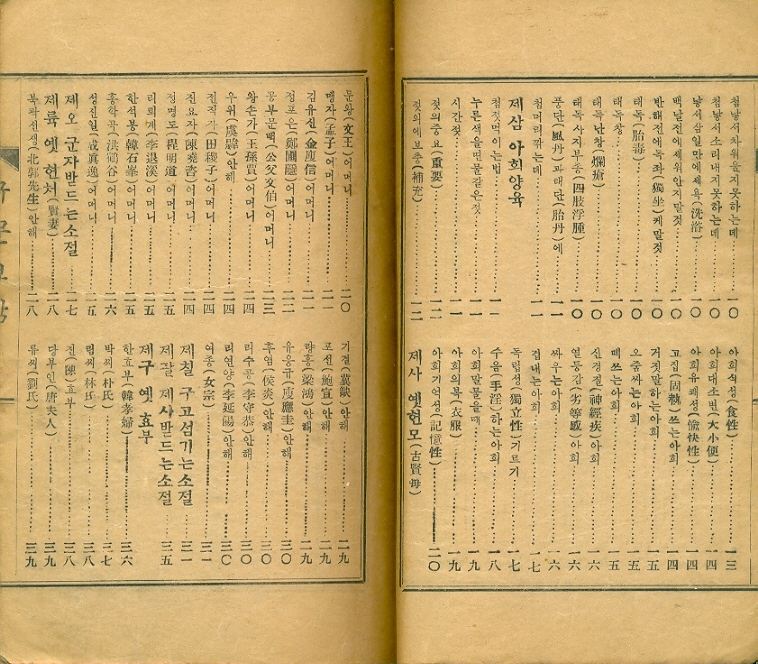 첨낳서차위를지못하는데 一〇
첨낳서소리내지못하는데 一〇
낳서삼일만에세욕(洗浴) 一〇
백날전에세위안지말것 一〇
반해전에독좌(獨坐)케말것 一〇
태독(胎毒)
태독창 一〇
태독난창(爛瘡) 一〇
태독사지부종(四肢浮腫) 一〇
풍단(風丹)과태단(胎丹)에 一一
첨머리깎는데 一一
제삼 아회양육
첨젓먹이는법 一一
누른색을변물같은젓
시간젓
젓의중요(重要) 一二
젓의에보충(補充) 一二
아회식성(食性) 一三
아회대소변(大小便) 一四
아회유쾌성(愉快性) 一四
고집(固執)쓰는아회 一四
거짓말하는아회 一五
오줌싸는아회 一五
떼쓰는아회 一五
신경질(神經疾)아회 一六
열등감(劣等感)아회 一六
싸우는아회 一六
겁내는아회 一七
독립성(獨立性)기르기 一七
수음(手淫)하는아회 一八
아회말물을때 一九
아회의복(衣服) 一九
아회기억성(記憶性) 二〇
제사 옛현모(古賢母)
문왕(文王)어머니 二〇
맹자(孟子)어머니 二一
김유신(金庾信)어머니 二一
정포은(鄭圃隱)어머니 二二
공부문백(公父文伯)어머니 二三
왕손가(王孫賈)어머니 二四
우위(虞韙)어머니 二四
전직자(田稷子)어머니 二四
진요자(陳堯咨)어머니 二四
정명도(程明道)어머니 二五
리퇴계(李退溪)어머니 二五
한석봉(韓石峯)어머니 二五
홍학곡(洪鶴谷)어머니 二六
성진일(成眞逸)어머니 二五
제오 군자받드는소절 二七
제륙 옛현처(賢妻) 二八
북곽선생(北郭先生)안해 二八
기결(冀缺)안해 二九
포선(鮑宣)안해 二九
량홍(梁鴻)안해 二九
유응규(庾應圭)안해 三〇
후염(侯炎)안해 三〇
리수공(李守恭)안해 三〇
리연양(李延陽)안해 三〇
여종(女宗) 三一
제칠 구고섬기는소절 三一
제팔 제사받드는소절 三五
제구 옛효부
한효부(韓孝婦) 三六
박씨(朴氏) 三七
림씨(林氏) 三八
진(陳)효부 三八
당부인(唐夫人) 三九
류씨(劉氏) 三九